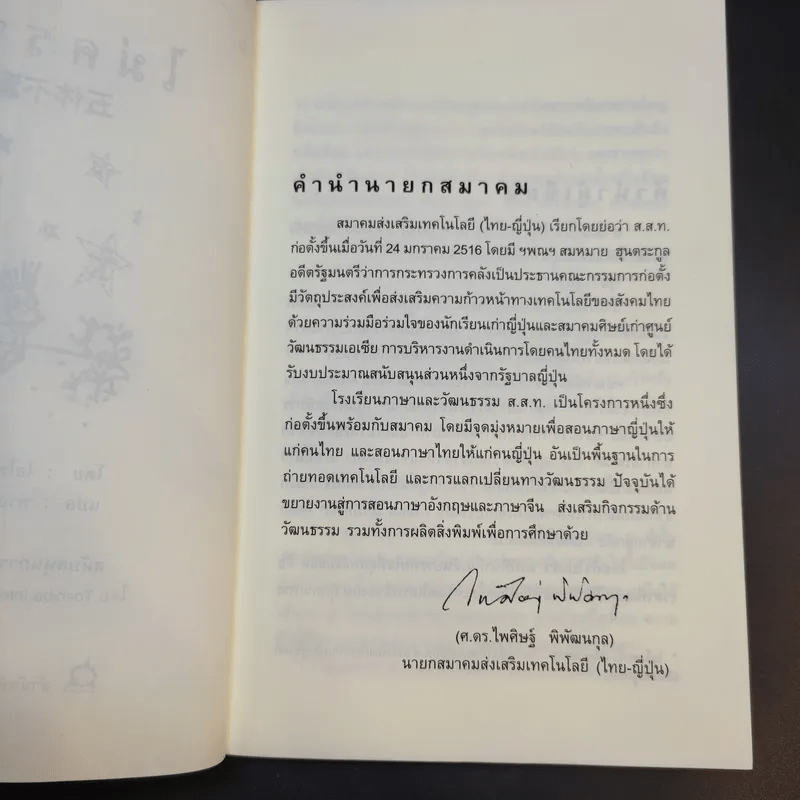 คำนำนายกสมาคม
สมาคมส่งเสริมเทคโนโลยี (ไทย-ญี่ปุ่น) เรียกโดยย่อว่า ส.ส.ท.
ก่อตั้งขึ้นเมื่อวันที่ 24 มกราคม 2516 โดยมี ฯพณฯ สมหมาย ฮุนตระกูล
อดีตรัฐมนตรีว่าการกระทรวงการคลังเป็นประธานคณะกรรมการก่อตั้ง
มีวัตถุประสงค์เพื่อส่งเสริมความก้าวหน้าทางเทคโนโลยีของสังคมไทย
ด้วยความร่วมมือร่วมใจของนักเรียนเก่าญี่ปุ่นและสมาคมศิษย์เก่าศูนย์
วัฒนธรรมเอเซีย การบริหารงานดำเนินการโดยคนไทยทั้งหมด โดยได้
รับงบประมาณสนับสนุนส่วนหนึ่งจากรัฐบาลญี่ปุ่น
โรงเรียนภาษาและวัฒนธรรม ส.ส.ท. เป็นโครงการหนึ่งซึ่ง
ก่อตั้งขึ้นพร้อมกับสมาคม โดยมีจุดมุ่งหมายเพื่อสอนภาษาญี่ปุ่นให้
แก่คนไทย และสอนภาษาไทยให้แก่คนญี่ปุ่น อันเป็นพื้นฐานในการ
ถ่ายทอดเทคโนโลยี และการแลกเปลี่ยนทางวัฒนธรรม ปัจจุบันได้
ขยายงานสู่การสอนภาษาอังกฤษและภาษาจีน ส่งเสริมกิจกรรมด้าน
วัฒนธรรม รวมทั้งการผลิตสิ่งพิมพ์เพื่อการศึกษาด้วย
(ศ.ดร.ไพศิษฐ์ พิพัฒนกุล)
นายกสมาคมส่งเสริมเทคโนโลยี (ไทย-ญี่ปุ่น)